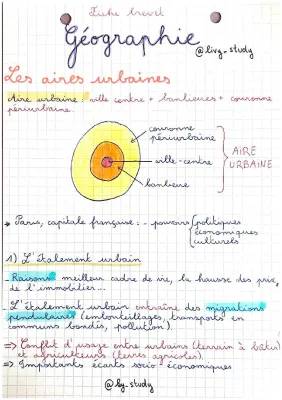 Fiche brevet
Géographie
@livy_study
Les aires urbaines
Aire urbaine : ville centre + banlieues + couronne
périurbaine.
couronne
périurbaine
ville-centre
banlieue
AIRE
URBAINE
* Paris, capitale française : - pouvoirs politiques
économiques
culturels
1) L'étalement urbain
Raisons meilleur cadre de vie, la hausse des prix,
de l'immobilier...
L'étalement urbain entraîne des migrations
pendulaires (embouteillages, transports en
communs bondés, pollution).
⇒ Conflit d'usage entre urbains (terrain à bâtir)
et agriculteurs (terres agricoles).
⇒ Importants écarts socio-économiques
@ly_study